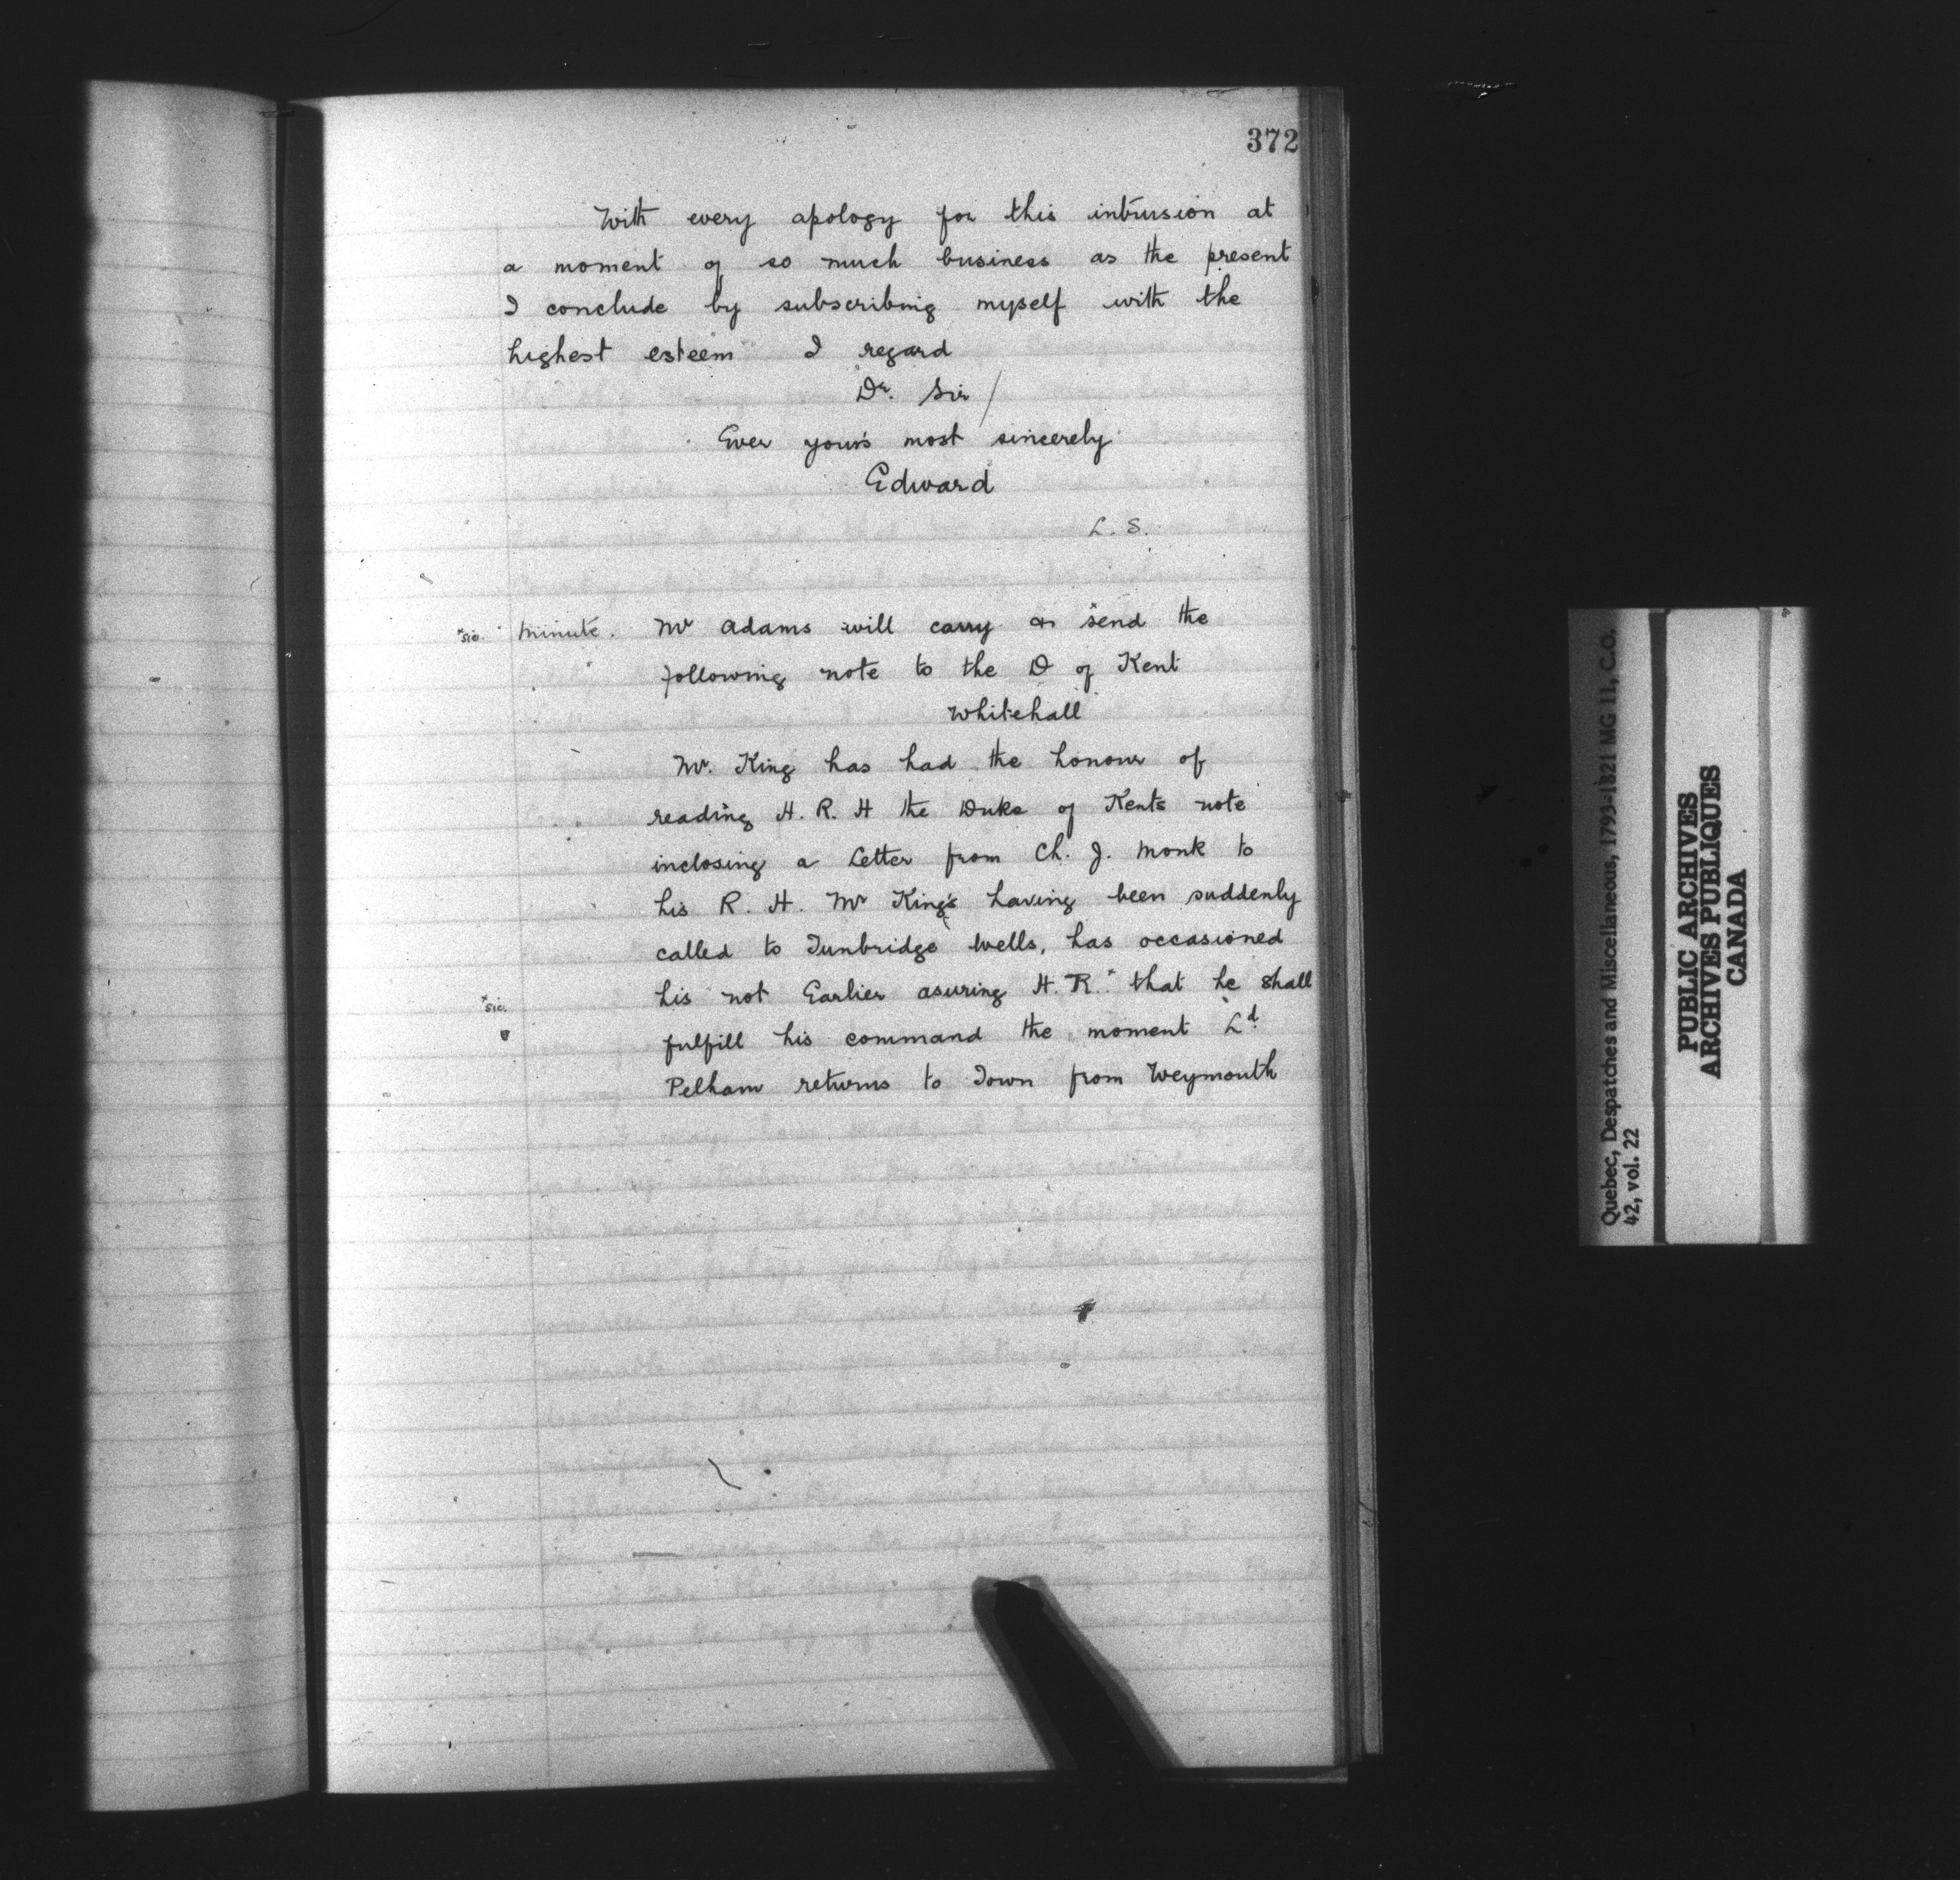 372
With every apology for this intrusion at
a moment of so much business as the present
I conclude by subscribing myself with the
highest esteem I regard
Dr. Sir /
Ever your's most sincerely
Edward
L. S.
*sic. minute. Mr Adams will carry or *send the
following note to the D of Kent
Whitehall
Mr. King has had the honour of
reading H. R. H the Duke of Kents note
inclosing a Letter from Ch. J. Monk to
his R. H. Mr King's having been suddenly
called to Tunbridge Wells, has occasioned
*sic. his not Earlier asuring H. R.* that he shall
fulfill his command the moment Ld.
Pelham returns to Town from Weymouth
Quebec, Despatches and Miscellaneous, 1793-1821 MG 11, C.O.
42, vol. 22
PUBLIC ARCHIVES
ARCHIVES PUBLIQUES
CANADA